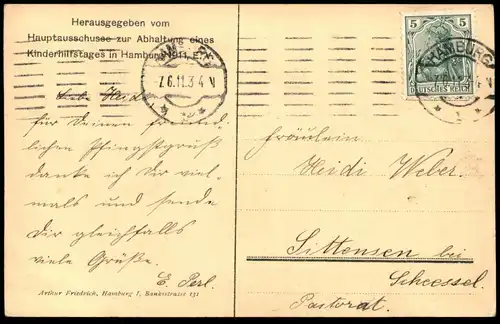 Herausgegeben vom
Hauptausschusse zur Abhaltung eines
Kinderhilfstages in Hamburg 1911 E.V.
7.6.11.3-4 N
Liebe Heidi
für Deinen freund-
lichen Pfingstgruß
danke ich Dir viel-
mals und sende
Dir gleichfalls
viele Grüße.
E. Perl.
Arthur Friedrich, Hamburg I, Banksstrasse 131
5 5
DEUTSCHES REICH
HAMBURG
7.6.11
Fräulein
Heidi Weber.
Sittensen bei
Scheessel.
Pastorat.